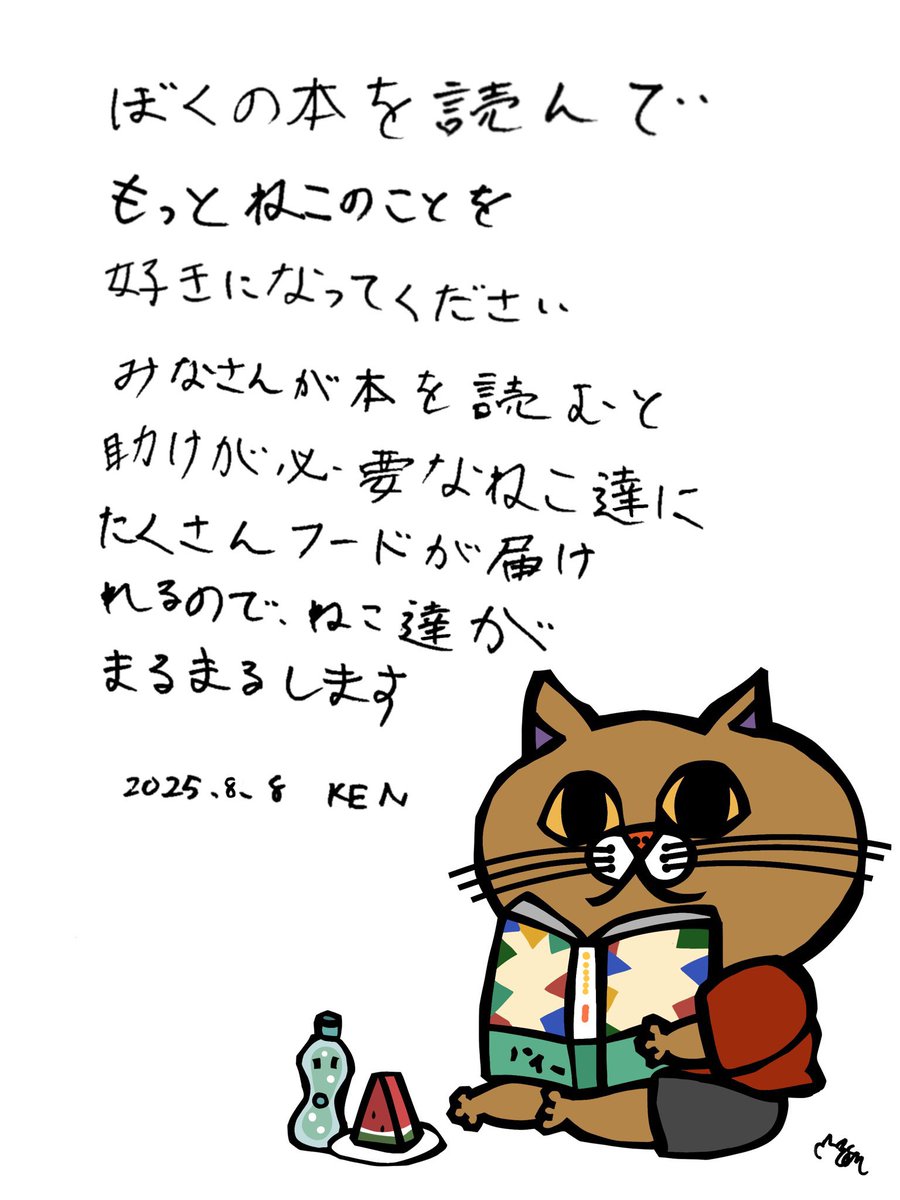 ぼくの本を読んで‥
もっとねこのことを
好きになってください
みなさんが本を読むと
助けが必要なねこ達に
たくさんフードが届け
れるので、ねこ達が
まるまるします
2025.8.8 KEN